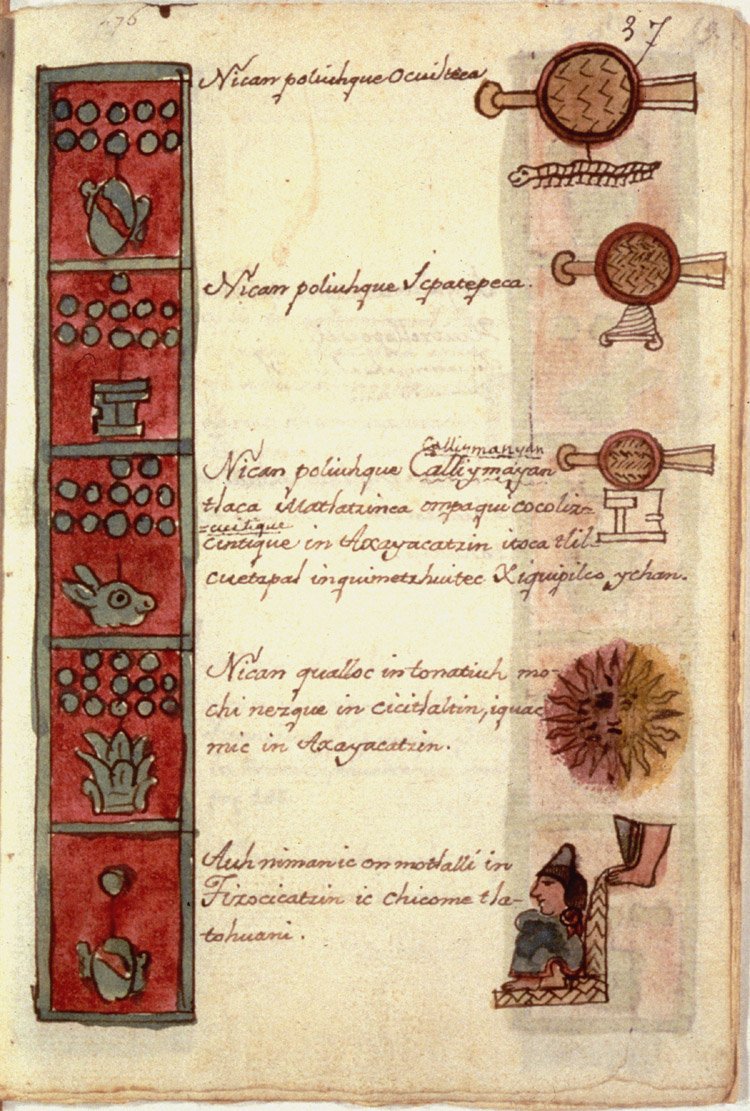 37
Nican poliuhque Ocuilteca
Nican poliuhque Icpatepeca.
Calliymanyan
Nican poliuhque Calliymayan
tlaca Matlatzinca ompa qui cocoliz=
=cuitique
cintique in Axayacatzin itoca tlil-
cuetzpal inquimetzhuitec Xiquipilco ychan.
Nican qualloc in tonatiuh mo-
chi nezque in cicitlaltin, iquac
mic in Axayacatzin.
Auh niman ic on motlalli in
Tizocicatzin ic chicome tla-
tohuani.